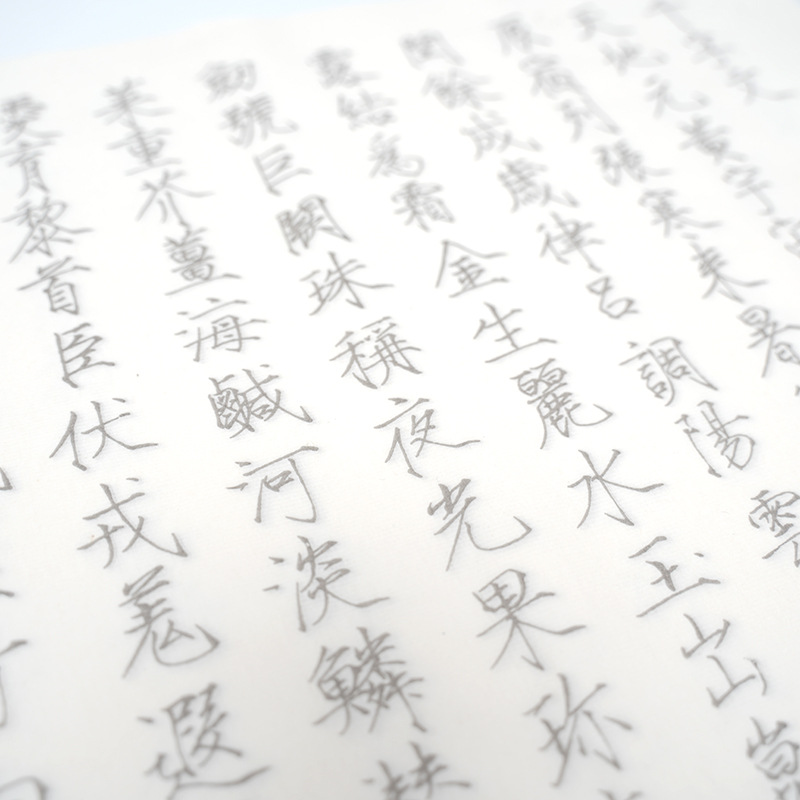 千字文
天地元黃宇宙
辰宿列張寒來暑
閏餘成歲律呂調陽雲
露結為霜金生麗水玉出崑
劍號巨闕珠稱夜光果珍
菜重芥薑海鹹河淡鱗
愛育黎首臣伏戎羌遐